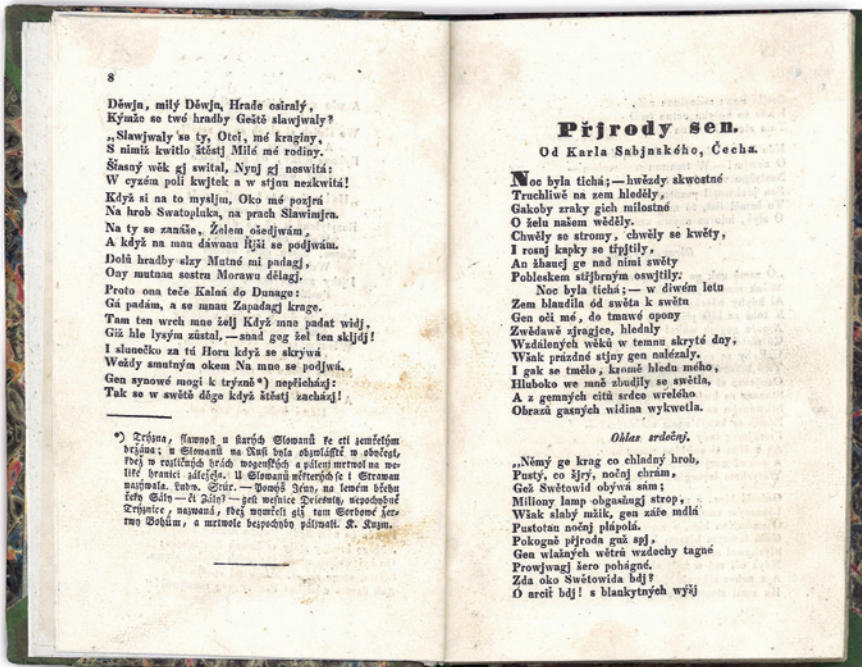 8
Děwjn, milý Děwjn, Hrade osiralý,
Kýmže se twé hradby Geště slawjwaly?
„Slawjwaly se ty, Otci, mé kraginy,
S nimiž kwitlo štěstj Milé mé rodiny.
Šťasný wěk gj swital, Nynj gj neswitá:
W cyzém poli kwjtek a w stjnu nezkwitá!
Když si na to mysljm, Oko mé pozjrá
Na hrob Swatopluka, na prach Slawimjra.
Na ty se zanáše, Želem ošedjwám,
A když na mau dáwnau Řjši se podjwám.
Dolů hradby slzy Mutné mi padagj,
Ony mutnau sestru Morawu dělagj.
Proto ona teče Kalná do Dunage:
Gá padám, a se mnau Zapadagj krage.
Tam ten wrch mne želj Když mne padat widj,
Giž hle lysým zůstal, — snad geg žel ten skljdj!
I slunečko za tú Horu když se skrýwá
Weždy smutným okem Na mne se podjwá.
Gen synowé mogi k trýzně*) nepřicházj:
Tak se w swětě děgo když štěstj zacházj!
*) Trýzna, slawnost u starých Slowanů ke cti zemřelým
držána; u Slowanů na Rusi byla obzwlásstě w obyčegi,
kdež w rozličných hrách wogenských a pálení mrtwol na we-
liké hranici záležela. U Slowanů některých se i Strawau
nazýwala. Ludw. Štúr. — Ponýž Jény, na lewém břehu
řeky Sály — či Zály? — gest wesnice Driesnitz, nepochybně
Tryznice, nazwaná, kdež wymřelí giž tam Sorbowé žer-
twy Bohům, a mrtwole bezpochyby páljwali. K. Kuzm.
Přjrody sen.
Od Karla Sabjnského, Čecha.
Noc byla tichá; — hwězdy skwostné
Truchliwě na zem hleděly,
Gakoby zraky gich milostné
O želu našem wěděly.
Chwěly se stromy, chwěly se kwěty,
I rosnj kapky se třpjtily,
An žhaucj ge nad nimi swěty
Pobleskem střjbrným oswjtily.
Noc byla tichá; — w diwém letu
Zem blaudila od swěta k swětu
Gen oči mé, do tmawé opony
Zwědawě zjragjce, hledaly
Wzdálených wěků w temnu skryté dny,
Wšak prázdné stjny gen nalézaly.
I gak se tmělo, kromě hledu mého,
Hluboko we mně zbudily se swětla,
A z gemných citů srdce wřelého
Obrazů gasných widina wykwetla.
Ohlas srdečnj.
„Němý ge krag co chladný hrob,
Pustý, co šjrý, nočnj chrám,
Gež Swětowid obýwá sám;
Miliony lamp obgasňugj strop,
Wšak slabý mžik, gen záře mdlá
Pustotau nočnj plápolá.
Pokogně přjroda guž spj,
Gen wlažných wětrů wzdechy tagné
Prowjwagj šero pohágné.
Zda oko Swětowida bdj?
Ó arciť bdj! s blankytných wýšj